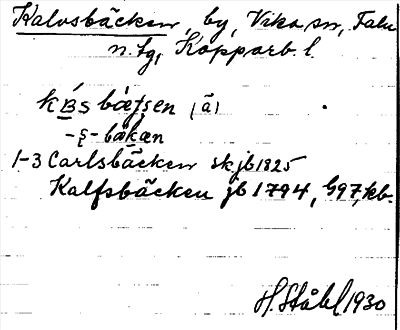 Kalvsbäcken, by, Vika sn, Falu
n. tg, Kopparb. l.
(ä)
1-3 Carlsbäcken sk jb 1825
Kalfsbäcken jb 1794, G97, kb.
H. Ståhl 1930